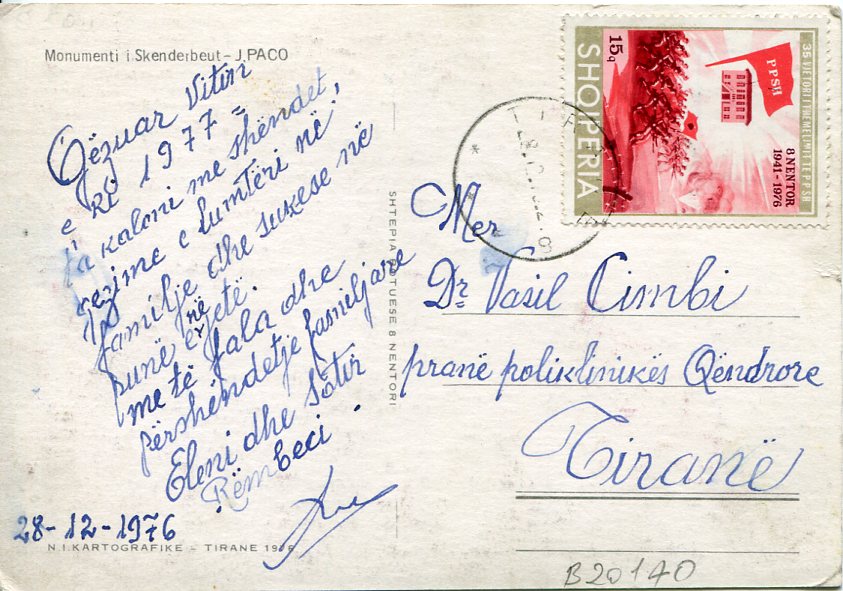 Monumenti i Skenderbeut - J. PACO
Gëzuar Vitin
e Ri 1977 =
Ja kaloni me shëndet,
gezime e lumtëri në
familje dhe suksese në
punë e në jetë.
me të fala dhe
përshëndetje familjare
Eleni dhe Sotir
Rëmbeci.
28-12-1976
N.I. KARTOGRAFIKE - TIRANE 1976
SHTEPIA BOTUESE 8 NENTORI
35 VJETORI I THEMELIMIT TE PPSH
PPSH
8 NENTOR
1941-1976
15q
SHQIPERIA
Mer
Dr Vasil Cimbi
pranë poliklinikës Qëndrore
Tiranë
B20140